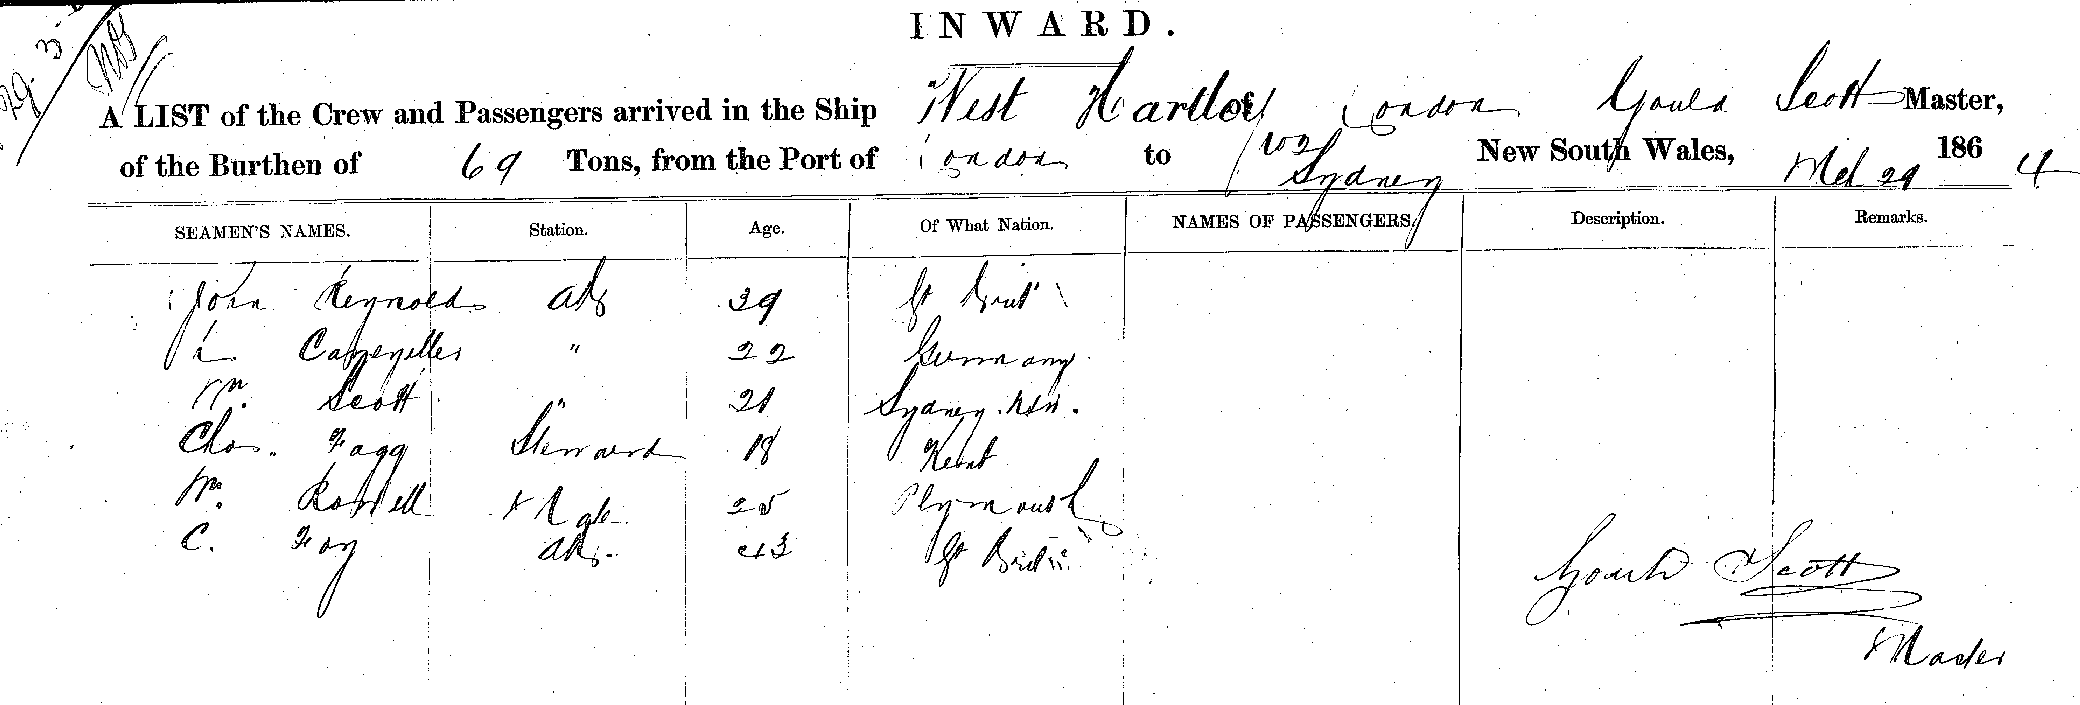 29. 3.
INWARD.
A LIST of the Crew and Passengers arrived in the Ship West Hartley of London Gould Scott Master,
of the Burthen of 69 Tons, from the Port of London to Sydney New South Wales, Mch 29 1864
SEAMEN'S NAMES. Station. Age. Of What Nation. NAMES OF PASSENGERS. Description. Remarks.
John Reynolds AB 39 Gt Brit
L " 22 Germany
Wm. Scott " 21 Sydney. NSW.
Chas. Fagg Steward 18 Kent
Wm. Mate 25 Plymouth
C. Foy AB. 43 Gt Brit
Gould Scott
Master